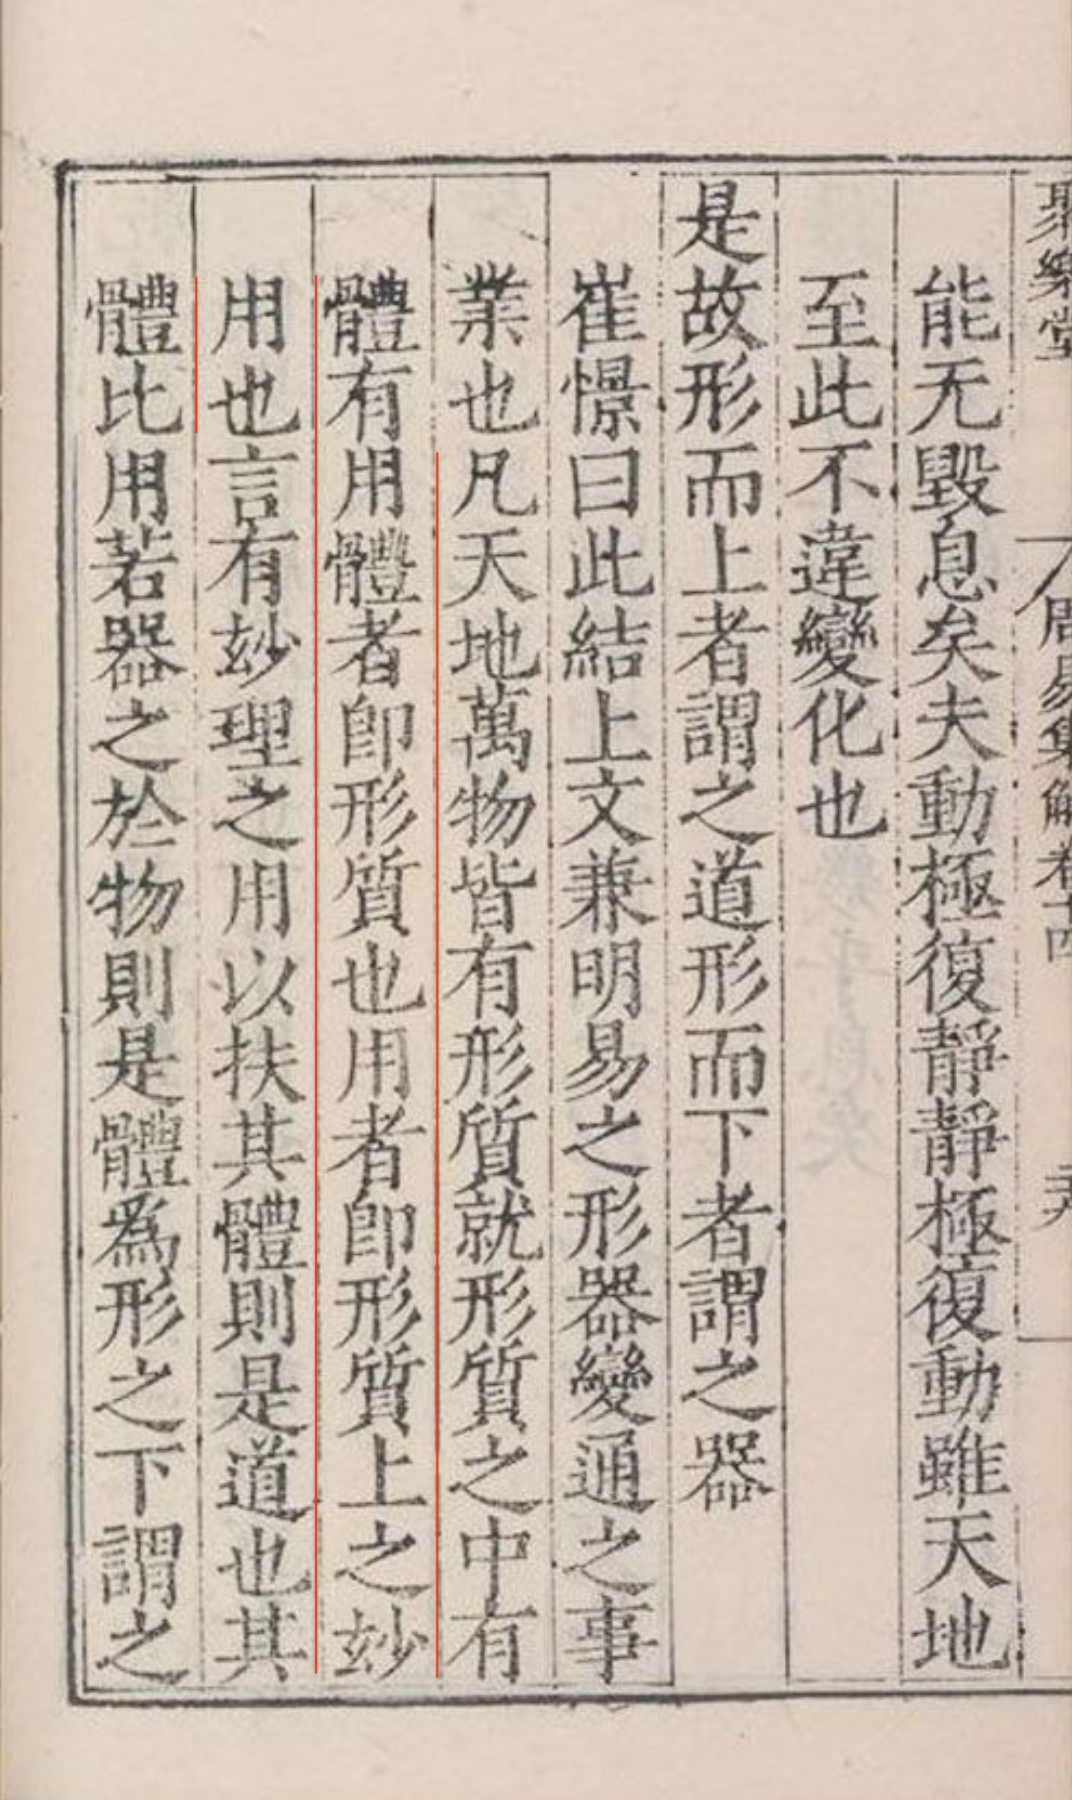 聚樂堂 周易集解卷十四
能无毀息矣夫動極復靜靜極復動雖天地
至此不違變化也
是故形而上者謂之道形而下者謂之器
崔憬曰此結上文兼明易之形器變通之事
業也凡天地萬物皆有形質就形質之中有
體有用體者卽形質也用者卽形質上之玅
用也言有玅理之用以扶其體則是道也其
體比用若器之於物則是體爲形之下謂之